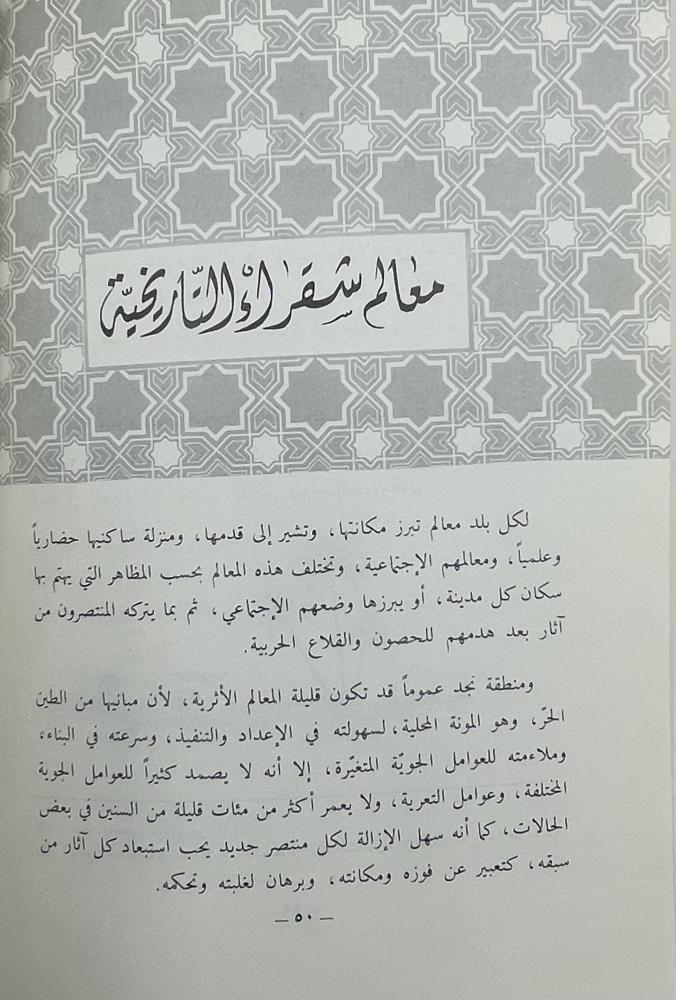 معالم شقراء التّاريخيّة
لكل بلد معالم تبرز مكانتها، وتشير إلى قدمها، ومنزلة ساكنيها حضارياً
وعلمياً، ومعالمهم الإجتماعية، وتختلف هذه المعالم بحسب المظاهر التي يهتم بها
سكان كل مدينة، أو يبرزها وضعهم الإجتماعي، ثم بما يتركه المنتصرون من
آثار بعد هدمهم للحصون والقلاع الحربية.
ومنطقة نجد عموماً قد تكون قليلة المعالم الأثرية، لأن مبانيها من الطين
الحرّ، وهو المونة المحلية، لسهولته في الإعداد والتنفيذ، وسرعته في البناء،
وملاءمته للعوامل الجويّة المتغيّرة، إلا أنه لا يصمد كثيراً للعوامل الجوية
المختلفة، وعوامل التعرية، ولا يعمر أكثر من مئات قليلة من السنين في بعض
الحالات، كما أنه سهل الإزالة لكل منتصر جديد يحب استبعاد كل آثار من
سبقه، كتعبير عن فوزه ومكانته، وبرهان لغلبته وتحكمه.
— ٥٠ —